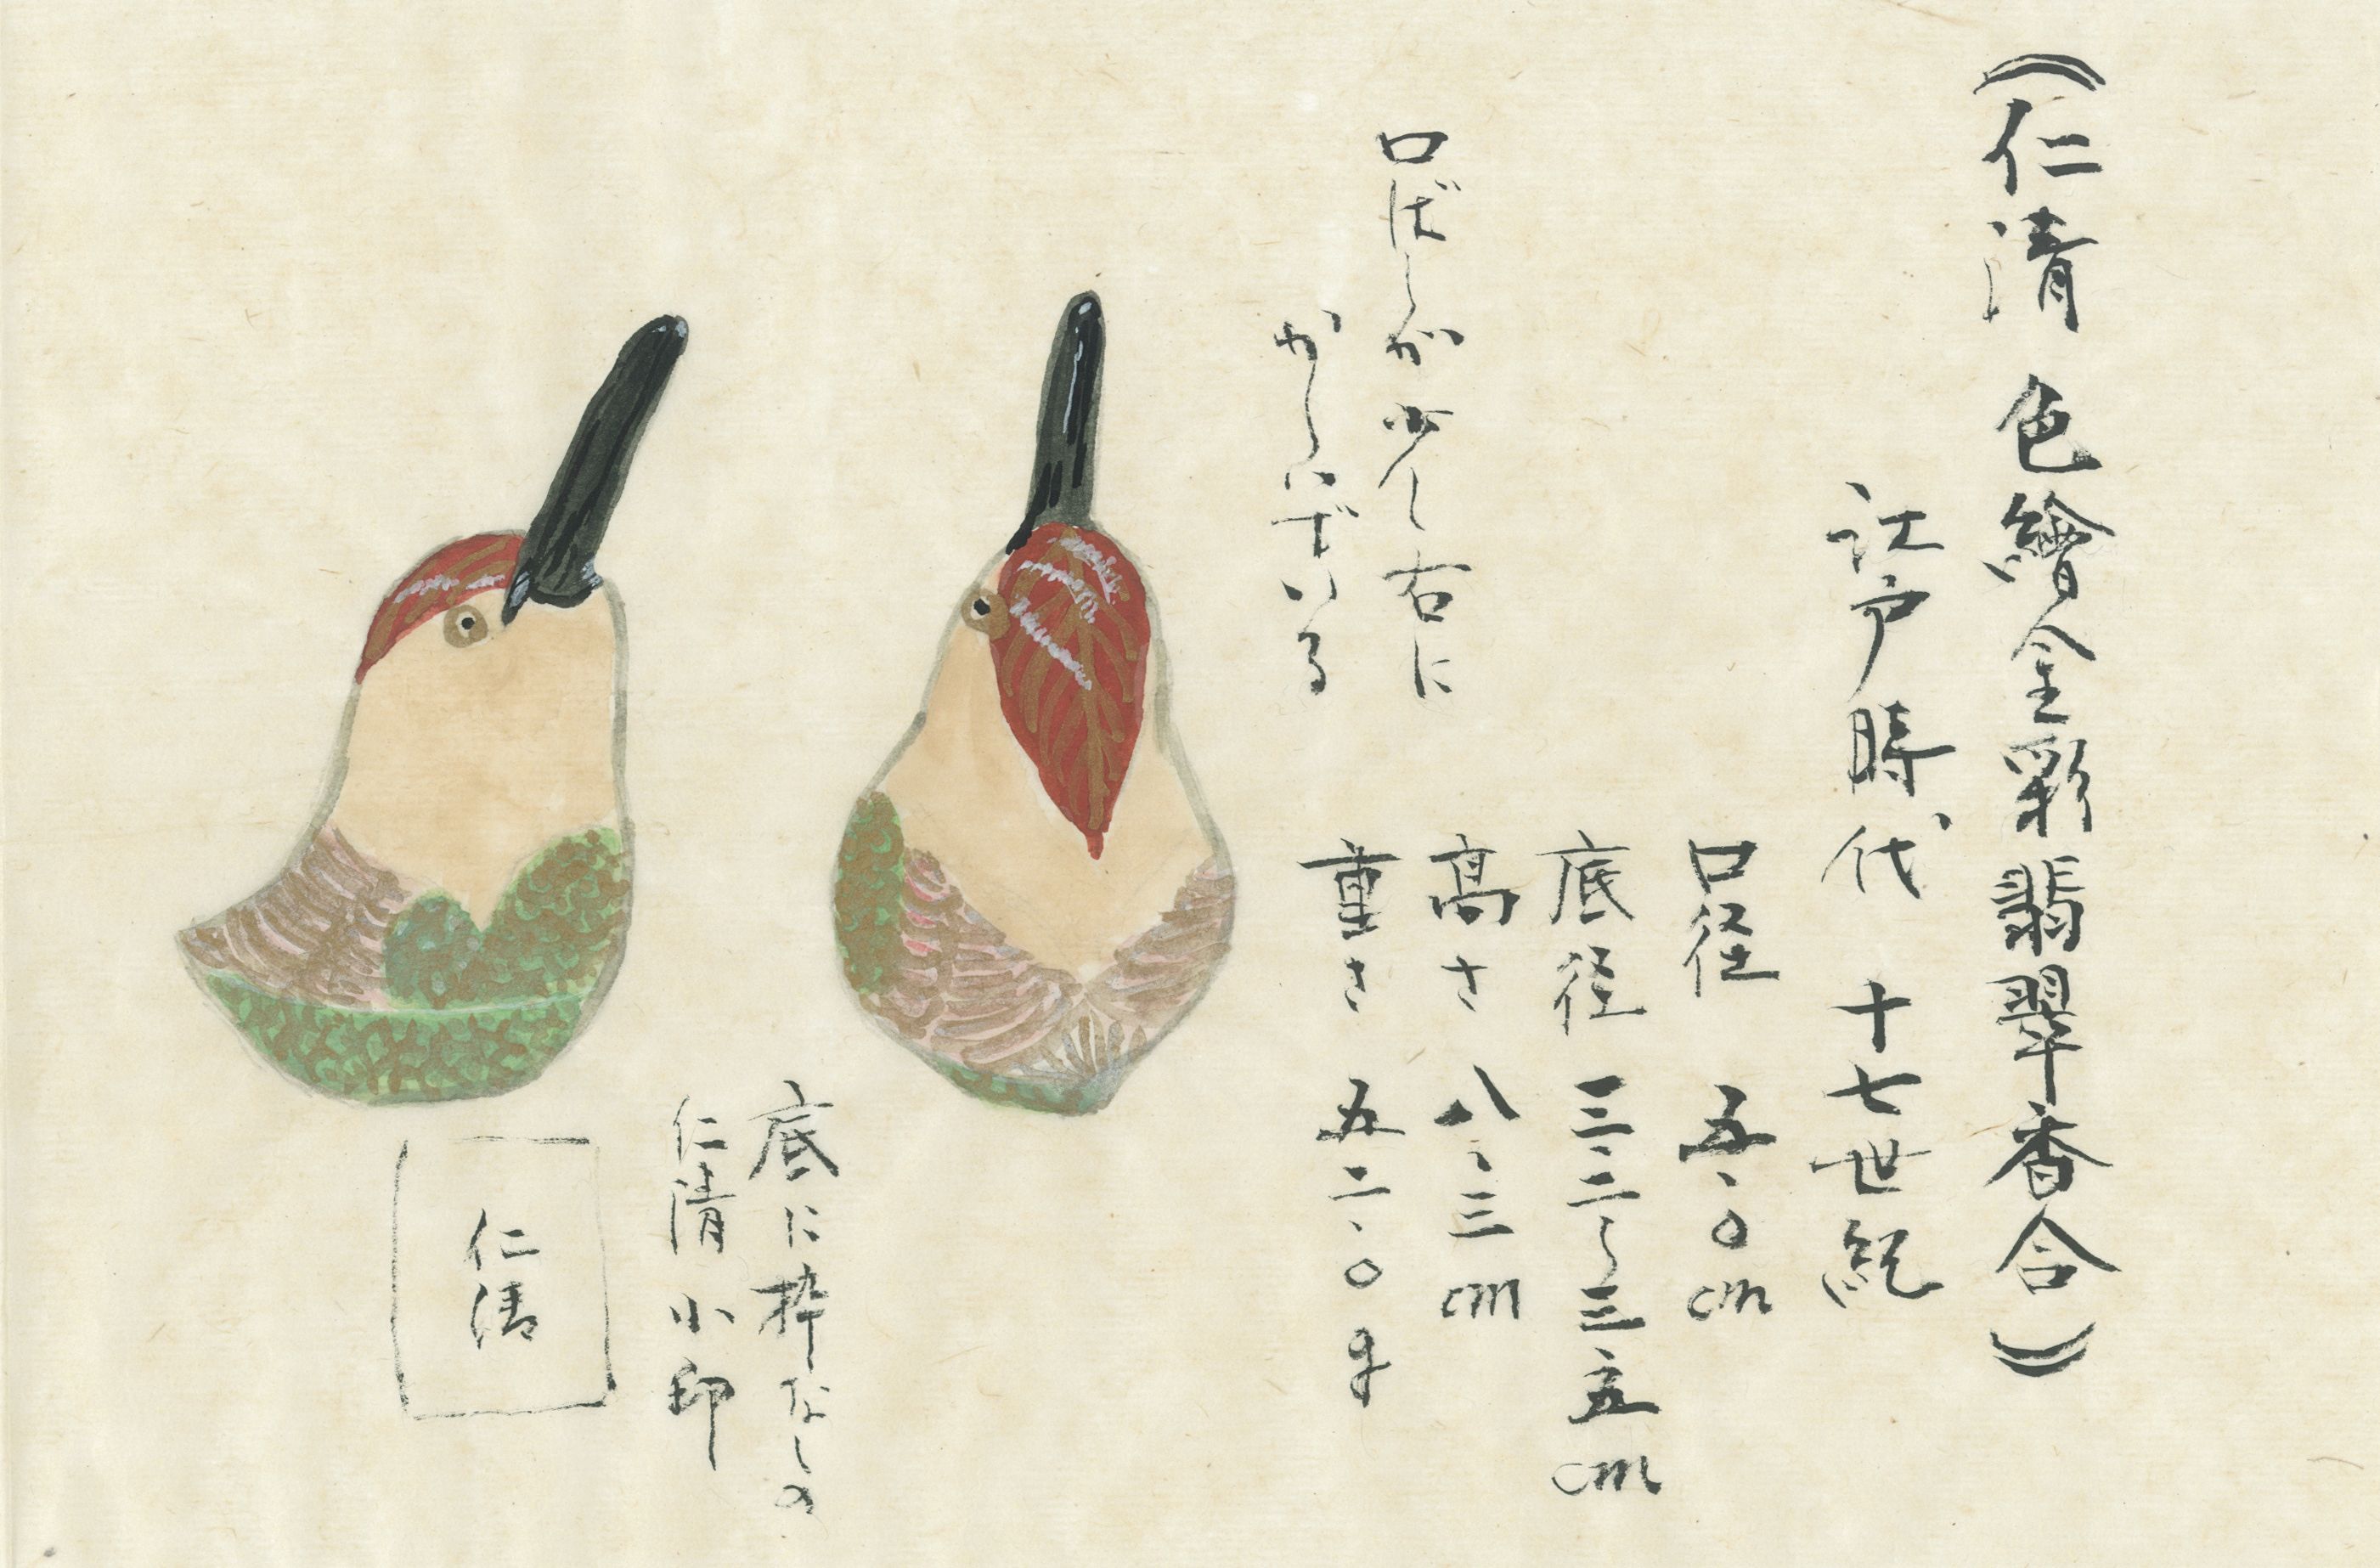 （仁清 色繪金彩翡翠香合）
江戸時代 十七世紀
口径 五、〇cm
底径 三、二〜三五cm
高さ 八、三cm
重さ 五二、〇g
口ばしが少し右に
かしいでいる
底に枠なしの
仁清小印
仁清